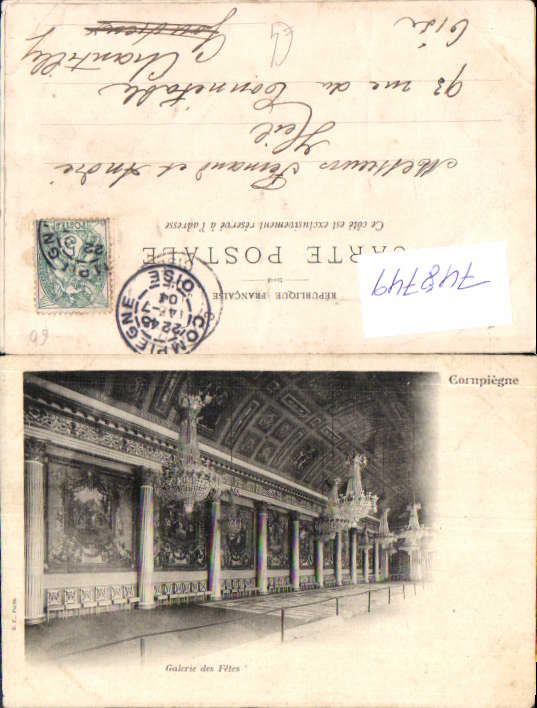 RÉPUBLIQUE FRANÇAISE
CARTE POSTALE
Ce côté est exclusivement réservé à l'adresse
Messieurs Fernand et André
Heil
93 rue du Connétable
Chantilly
Oise
748749
COMPIEGNE
OISE
04
POSTE
Cornpiègne
Galerie des Fêtes